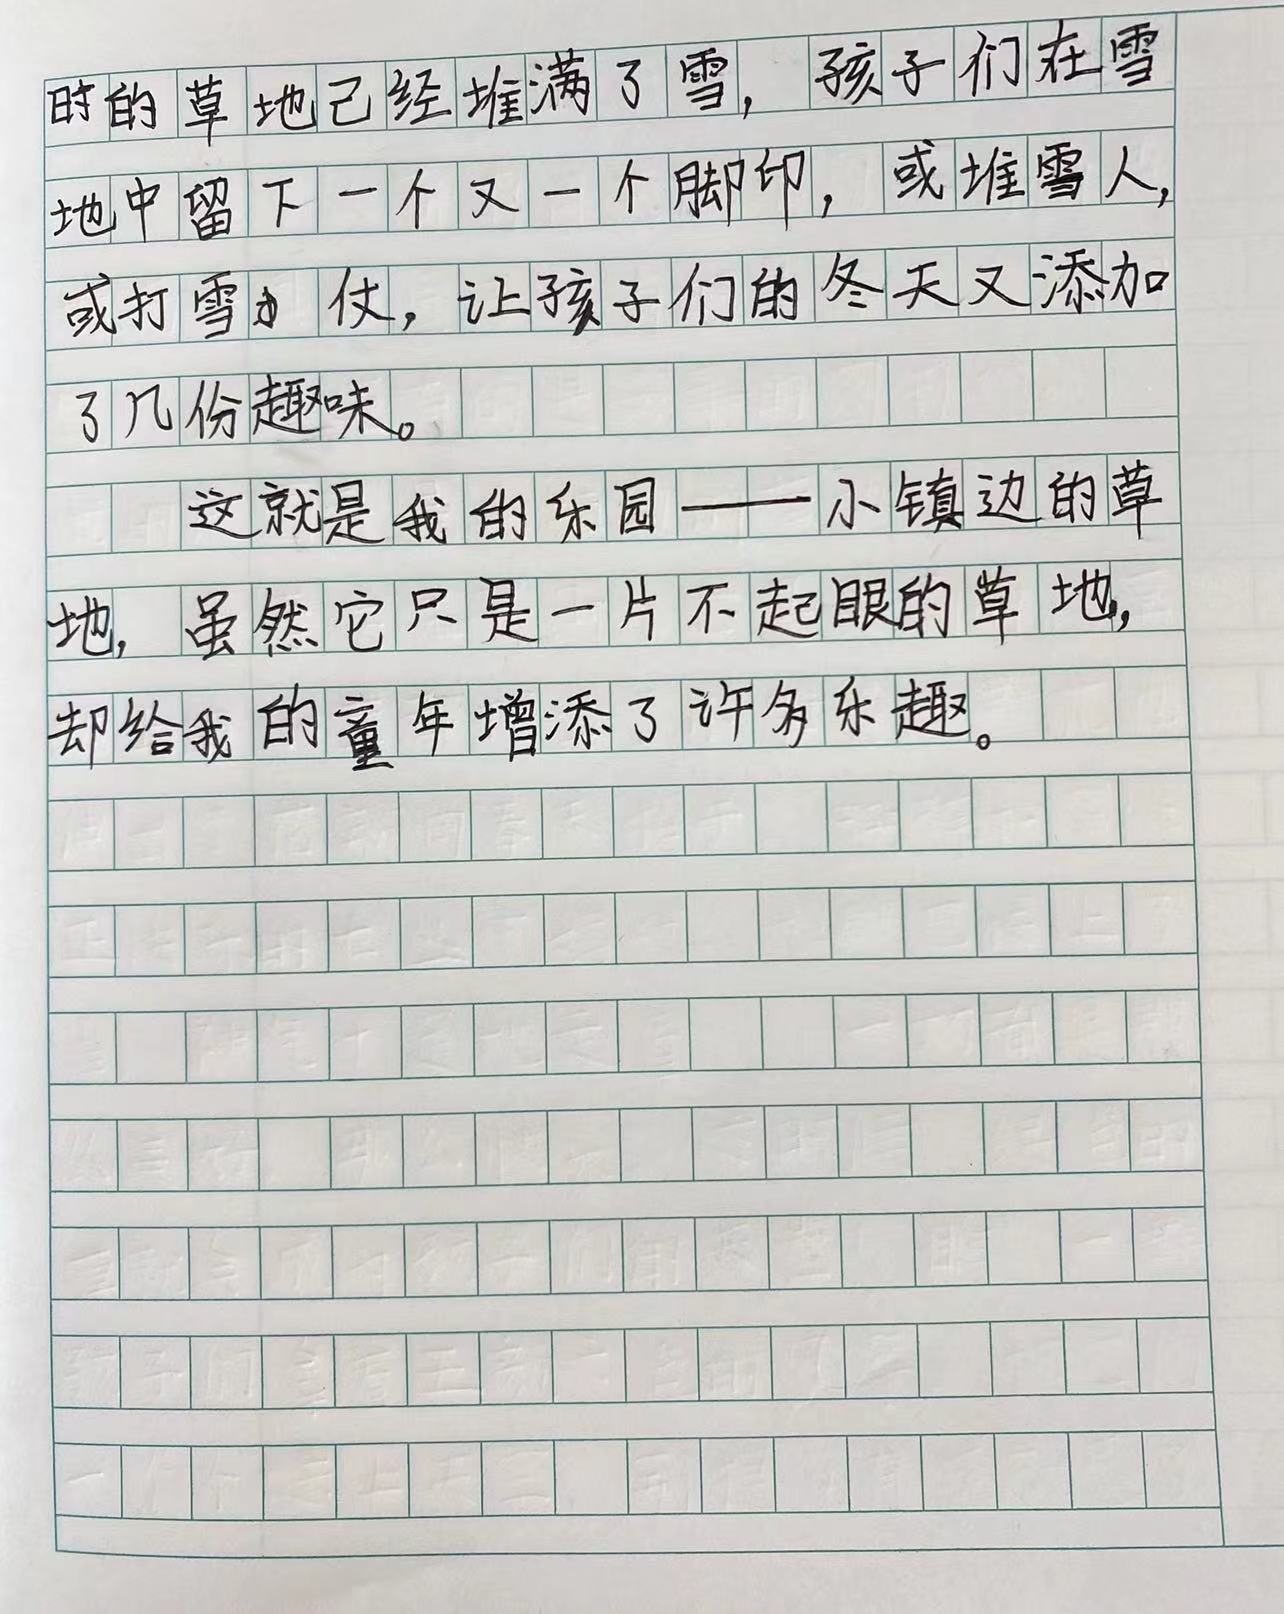 时的草地已经堆满了雪，孩子们在雪
地中留下一个又一个脚印，或堆雪人，
或打雪仗，让孩子们的冬天又添加
了几份趣味。
这就是我的乐园——小镇边的草
地，虽然它只是一片不起眼的草地，
却给我的童年增添了许多乐趣。